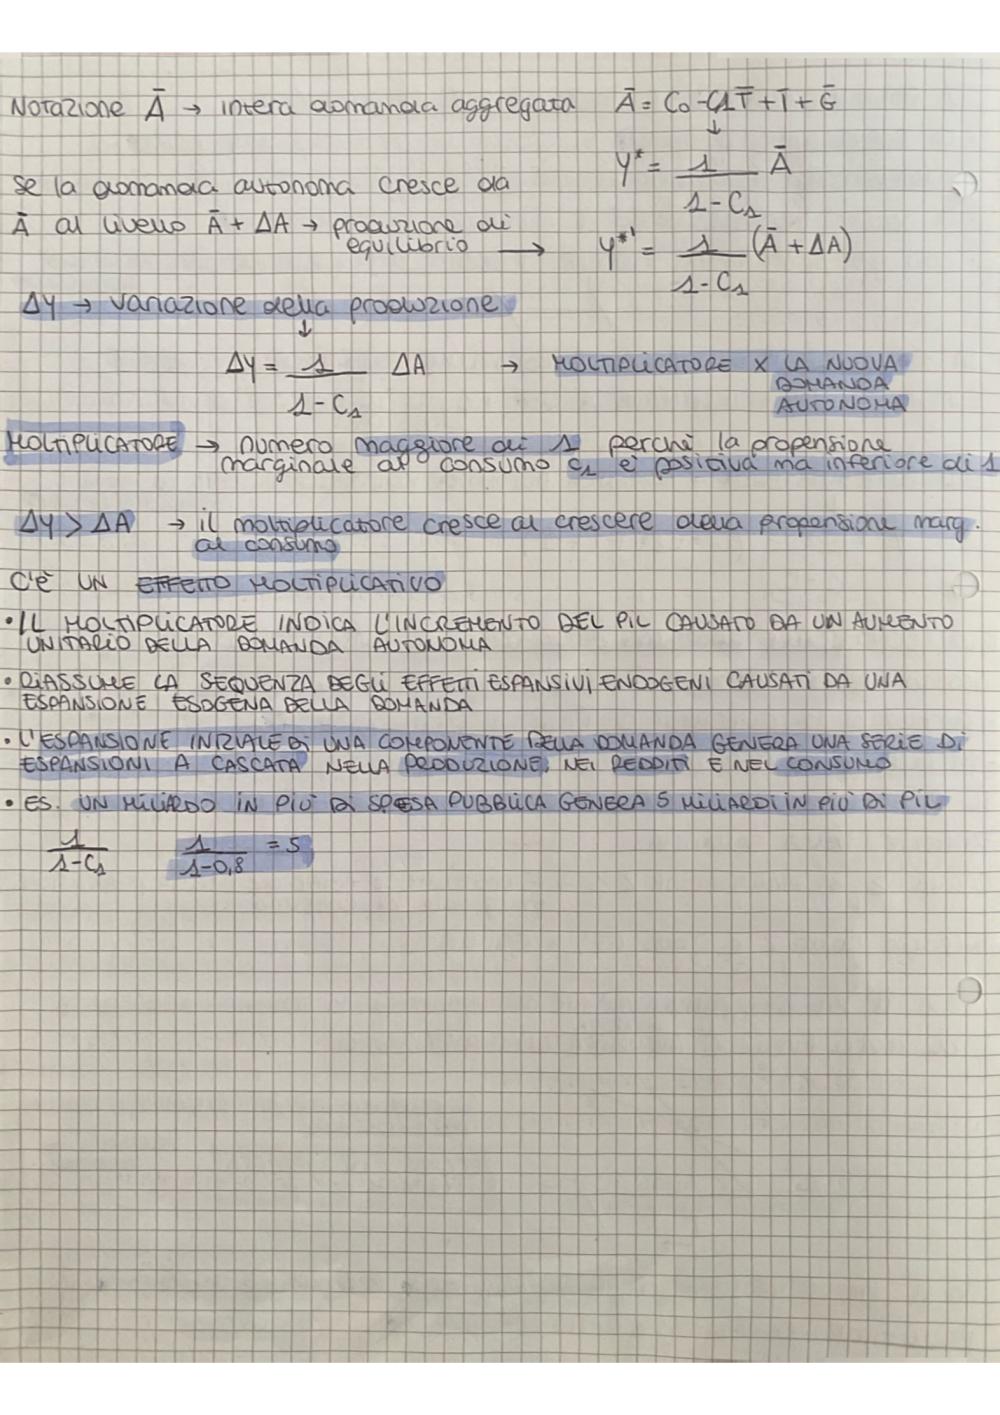 Notazione Ā → intera domanda aggregata Ā = C₀ - C₁T̄ + Ī + Ḡ
↓
Y* = 1/(1-C₁) Ā
Se la domanda autonoma cresce da
Ā al livello Ā + ΔA → produzione di
equilibrio → Y*' = 1/(1-C₁) (Ā + ΔA)
ΔY → variazione della produzione
↓
ΔY = 1/(1-C₁) ΔA → MOLTIPLICATORE X LA NUOVA
DOMANDA
AUTONOMA
MOLTIPLICATORE → numero maggiore di 1 perché la propensione
marginale al consumo C₁ è positiva ma inferiore di 1
ΔY > ΔA → il moltiplicatore cresce al crescere della propensione marg.
al consumo
C'È UN EFFETTO MOLTIPLICATIVO
• IL MOLTIPLICATORE INDICA L'INCREMENTO DEL PIL CAUSATO DA UN AUMENTO
UNITARIO DELLA DOMANDA AUTONOMA
• RIASSUME LA SEQUENZA DEGLI EFFETTI ESPANSIVI ENDOGENI CAUSATI DA UNA
ESPANSIONE ESOGENA DELLA DOMANDA
• L'ESPANSIONE INIZIALE DI UNA COMPONENTE DELLA DOMANDA GENERA UNA SERIE DI
ESPANSIONI A CASCATA NELLA PRODUZIONE, NEI REDDITI E NEL CONSUMO
• ES. UN MILIARDO IN PIÙ DI SPESA PUBBLICA GENERA 5 MILIARDI IN PIÙ DI PIL
1/(1-C₁) 1/(1-0,8) = 5